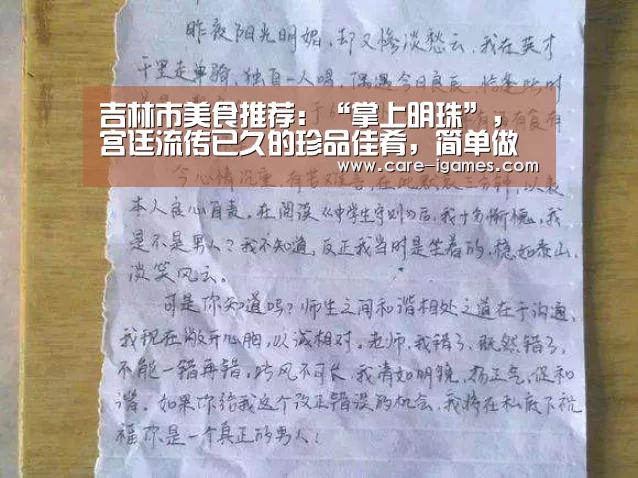 昨夜阳光明媚,却又惨淡愁云,我在英才
千里走单骑,独自一人喝,偶遇今日良辰,恰逢此时
吉林市美食推荐:“掌上明珠”,
宫廷流传已久的珍品佳肴,简单做
www.care-igames.com
今心情沉重,有苦难言,在此默哀三分钟,以表
本人良心自责。在阅读《中学生守则》后,我十分惭愧,我
是不是男人?我不知道,反正我当时是坐着的,稳如泰山,
淡笑风云。
可是你知道吗?师生之间和谐相处之道在于沟通,
我现在敞开心胸,以诚相对。老师,我错了,既然错了,
不能一错再错。此风不可长,我清如明镜,扬正气,促和
谐。如果你给我这个改正错误的机会,我将在私底下祝
福你是一个真正的男人!